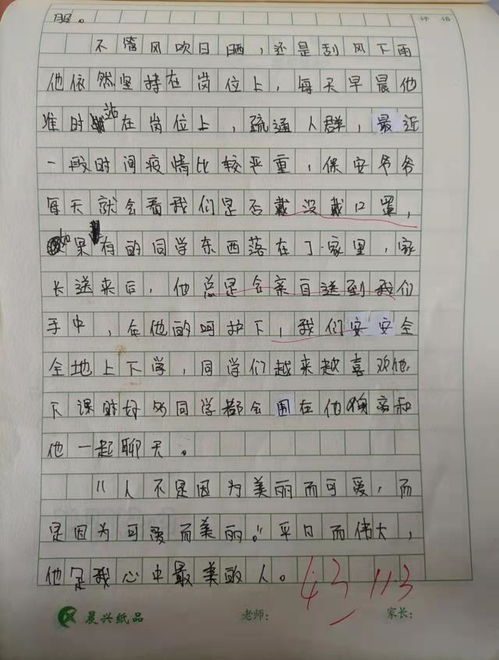 每。 评语
不管风吹日晒，还是刮风下雨
他依然坚持在岗位上，每天早晨他
准时站在岗位上，疏通人群，最近
一段时间疫情比较严重，保安爷爷
每天就会看我们是否戴没戴口罩，
如果有的同学东西落在了家里，家
长送来后，他总是会亲自送到我们
手中，在他的呵护下，我们安安全
全地上下学，同学们越来越喜欢他
下课时好多同学都会围在他和
他一起聊天。
"人不是因为美丽而可爱，而
是因为可爱而美丽。"平日而伟大，
他是我心中最美的人。 43 11.3
晨兴纸品 老师： 家长：